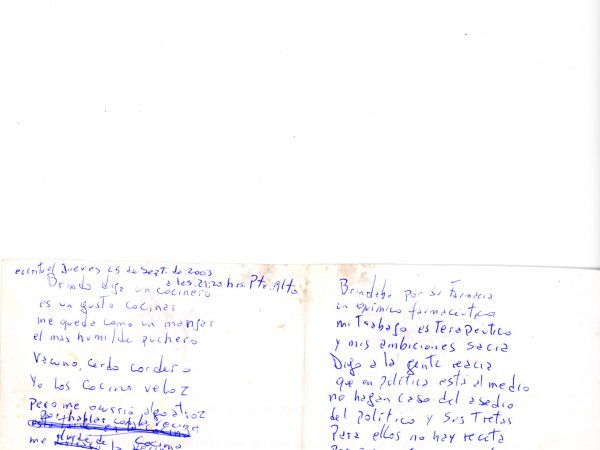 escrito el Jueves 25 de Sept. de 2003
a las 21:20 hrs. Pte. Alto
Brindo dijo un cocinero
es un gusto cocinar
me queda como un manjar
el mas humilde puchero
Vacuno, cerdo cordero
Yo los cocino veloz
Pero me ocurrió algo atroz
Por hablar con la vecina
me olvide de Cocina
Brindaba por su farmacia
un químico farmacéutico
mi trabajo es terapéutico
y mis ambiciones sacia
Digo a la gente reacia
que en política está al medio
no hagan caso del asedio
del político y sus tretas
Para ellos no hay receta